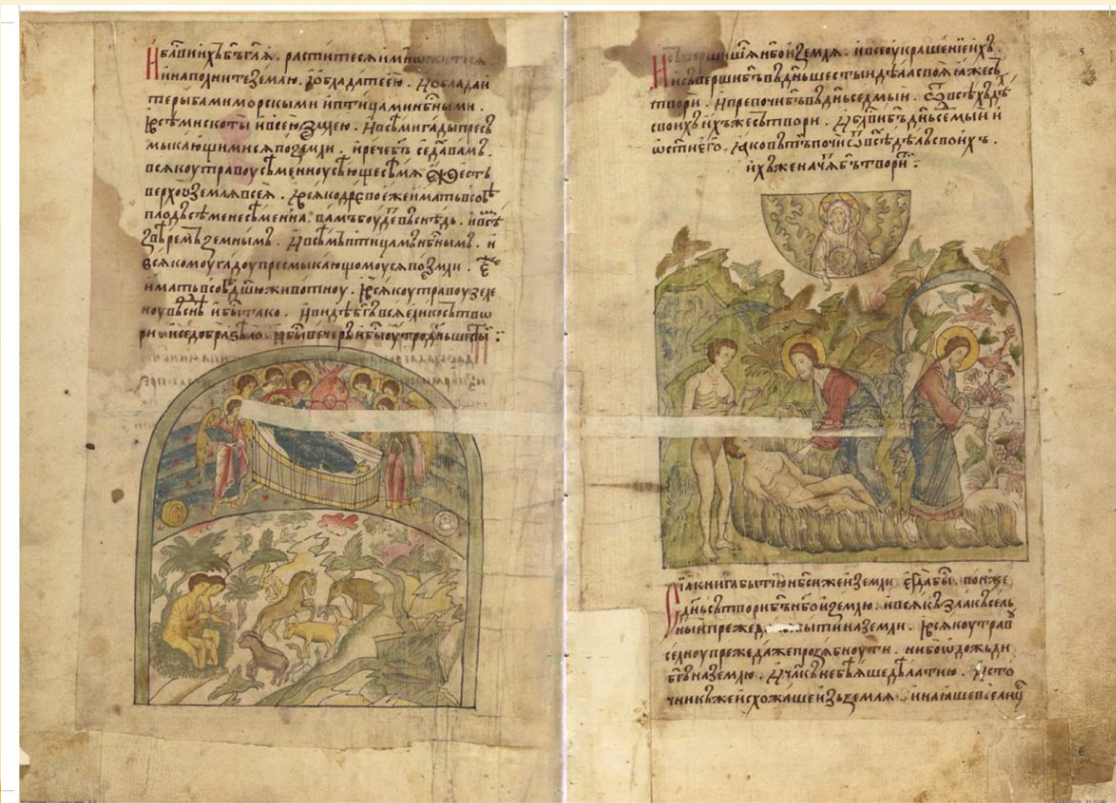 И бл҃ви ихъ б҃ъ гл҃я . раститеся и множитеся .
и наполните землю . и обладайте ею . и обладай
те рыбами морскыми и птицами нб҃ными .
и всѣми скоты и всею землею . и всѣми гады пресъ
мыкающимися по земли . и рече б҃ъ се дахъ вамъ .
всякоу травоу сѣменноу сѣющю сѣмя еже есть
верхоу земля всея . и всяко древо еже имать в собѣ
плодъ сѣмене сѣменна . вамъ боуде въ снѣдь . и всѣ
звѣремъ земнымъ . и всѣмъ птицамъ нб҃нымъ . и
всякомоу гадоу пресмыкающомоуся по земли . еже
имать в собѣ дш҃ю животноу . и всякоу травоу зеле
ноу въ снѣ и бы тако . и видѣ б҃ъ вся елико сътво
ри и се добра ѕѣло . и бы вечеръ и бы оутро дн҃ь шесты :
И съвершишя нб҃о и земля . и все украшение ихъ .
и съверши б҃ъ въ дн҃ь шестый дѣла своя яже съ
твори . и препочи б҃ъ въ дн҃ь седмый . ѿ всѣхъ дѣ
своихъ ихъже сътвори . и бл҃ви б҃ъ дн҃ь семый и
ѡст҃и его . яко в тъ почи ѿ всѣ дѣлъ своихъ .
ихъже начя б҃ъ твори :
Сіа книга бытію нб҃си же и земли егда бы . в онже
дн҃ь сътвори б҃ъ нб҃о и землю . и всякъ злакъ сель
ный преже быти на земли . и всякоу трав
селноу преже даже прозябноути . не бо ѡдожьди
б҃ъ на землю . и чл҃къ не бѣяше дѣлати ю . исто
чникъ же исхожаше изъ земля . и напаяше все лице